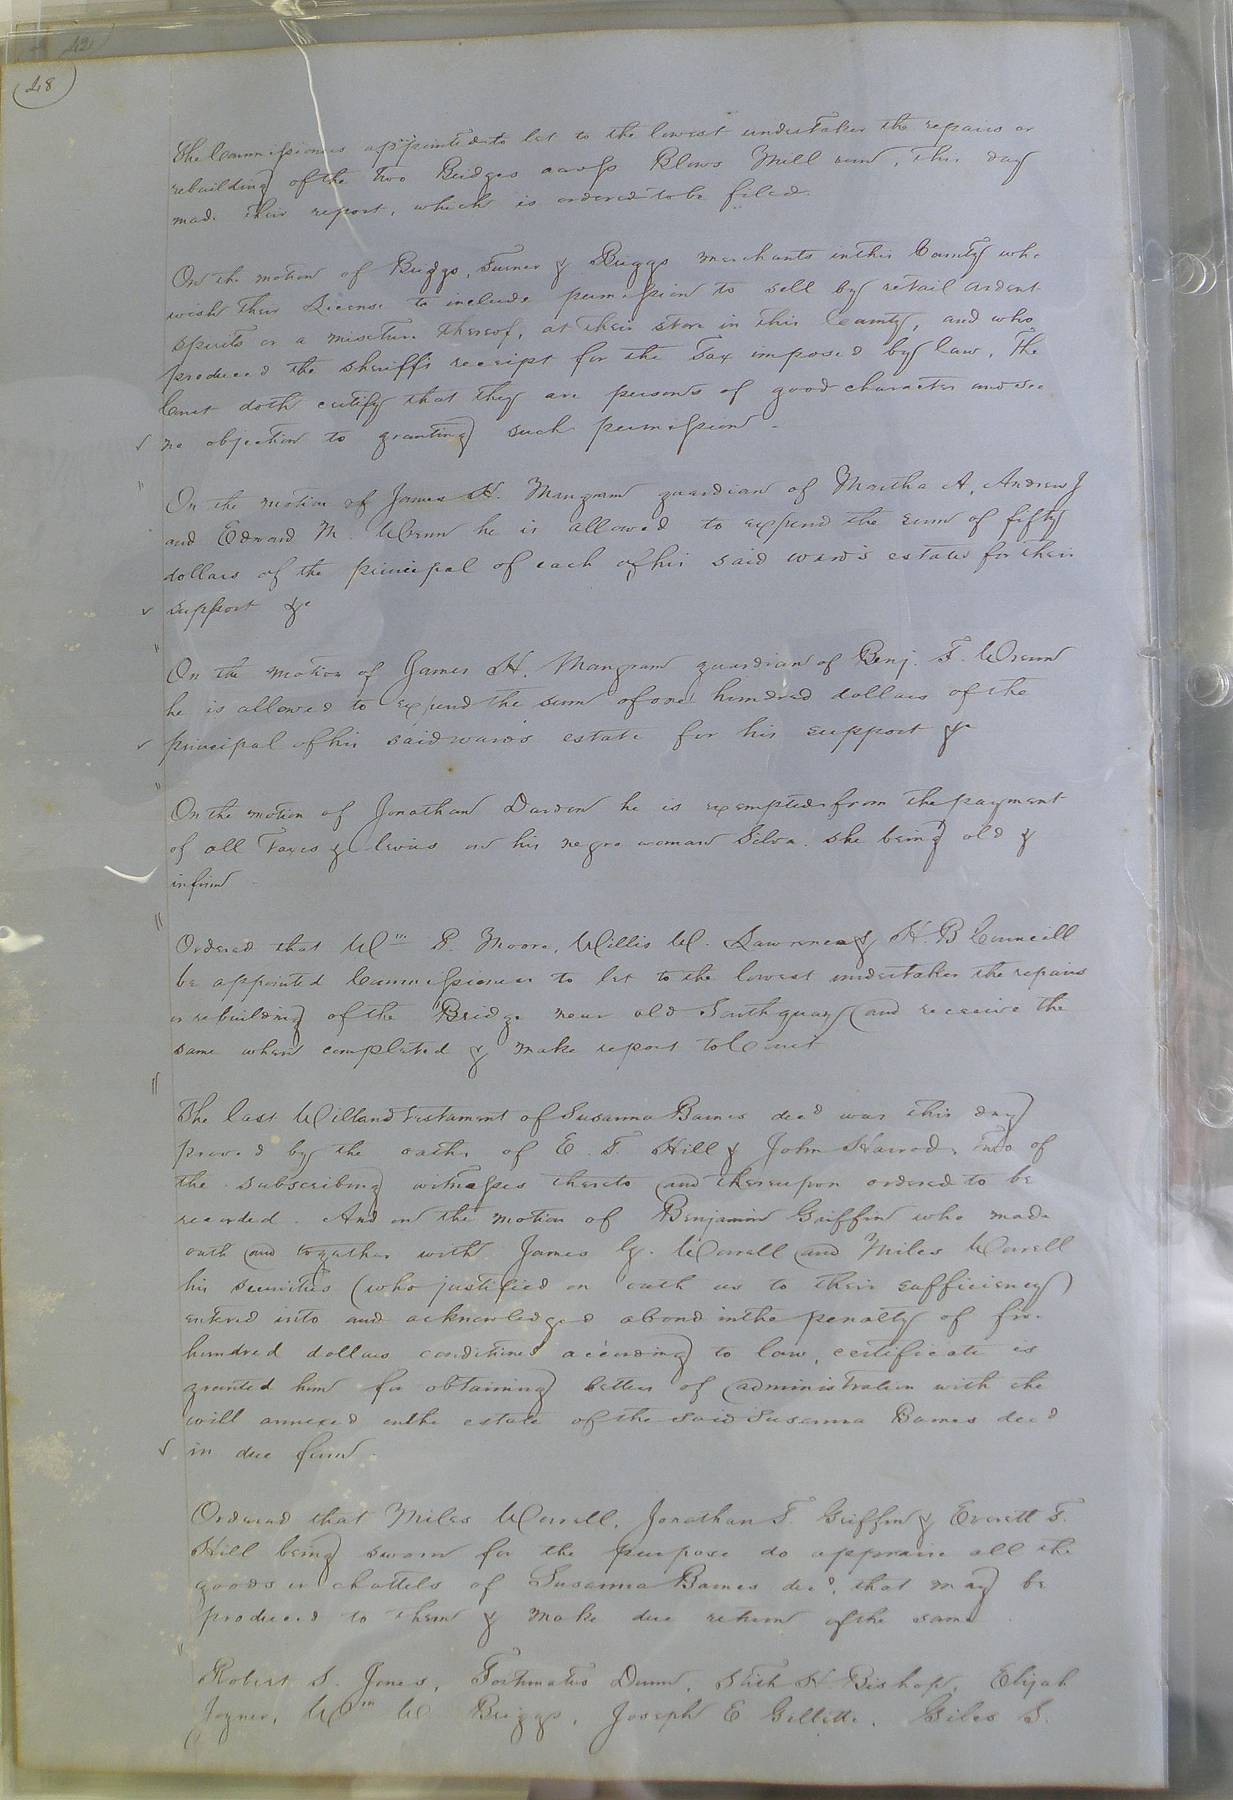 42
48
The Commissioners appointed to let to the lowest undertaker the repairs or
rebuilding of the two Bridges across Blows Mill run, this day
made their report, which is ordered to be filed.
On the motion of Briggs, Turner & Briggs merchants in this County who
wish their License to include permission to sell by retail ardent
spirits or a mixture thereof, at their store in this County, and who
produced the sheriff's receipt for the Tax imposed by law, The
Court doth certify that they are persons of good character and see
no objection to granting such permission -
On the motion of James H. Mangram guardian of Martha A, Andrew J
and Edward M. Wrenn he is allowed to expend the sum of fifty
dollars of the principal of each of his said ward's estates for their
support &c
On the motion of James H. Mangram guardian of Benj. F. Wrenn
he is allowed to expend the sum of one hundred dollars of the
principal of his said ward's estate for his support &c
On the motion of Jonathan Darden he is exempted from the payment
of all Taxes & levies on his negro woman Silva. she being old &
infirm
Ordered that Wm P. Moore, Willis W. Lawrence & H. B Councill
be appointed Commissioners to let to the lowest undertaker the repairs
or rebuilding of the Bridge near old Southquay and receive the
same when completed & make report to Court
The last Will and Testament of Susanna Barnes decd was this day
proved by the oaths of E. T. Hill & John Harrod, two of
the subscribing witnesses thereto and thereupon ordered to be
recorded. And on the motion of Benjamin Griffin who made
oath and together with James G. Worrell and Miles Worrell
his securities (who justified on oath as to their sufficiency)
entered into and acknowledged a bond in the penalty of five
hundred dollars conditioned according to law, certificate is
granted him for obtaining letters of administration with the
will annexed on the estate of the said Susanna Barnes decd
in due form.
Ordered that Miles Worrell, Jonathan T. Griffin & Everett T.
Hill being sworn for the purpose do appraise all the
goods or chattels of Susanna Barnes decd. that may be
produced to them & make due return of the same.
Robert S. Jones, Fortunatus Dunn, Stith H Bishop, Elijah
Joyner, Wm W. Briggs, Joseph E Gillette, Giles S.